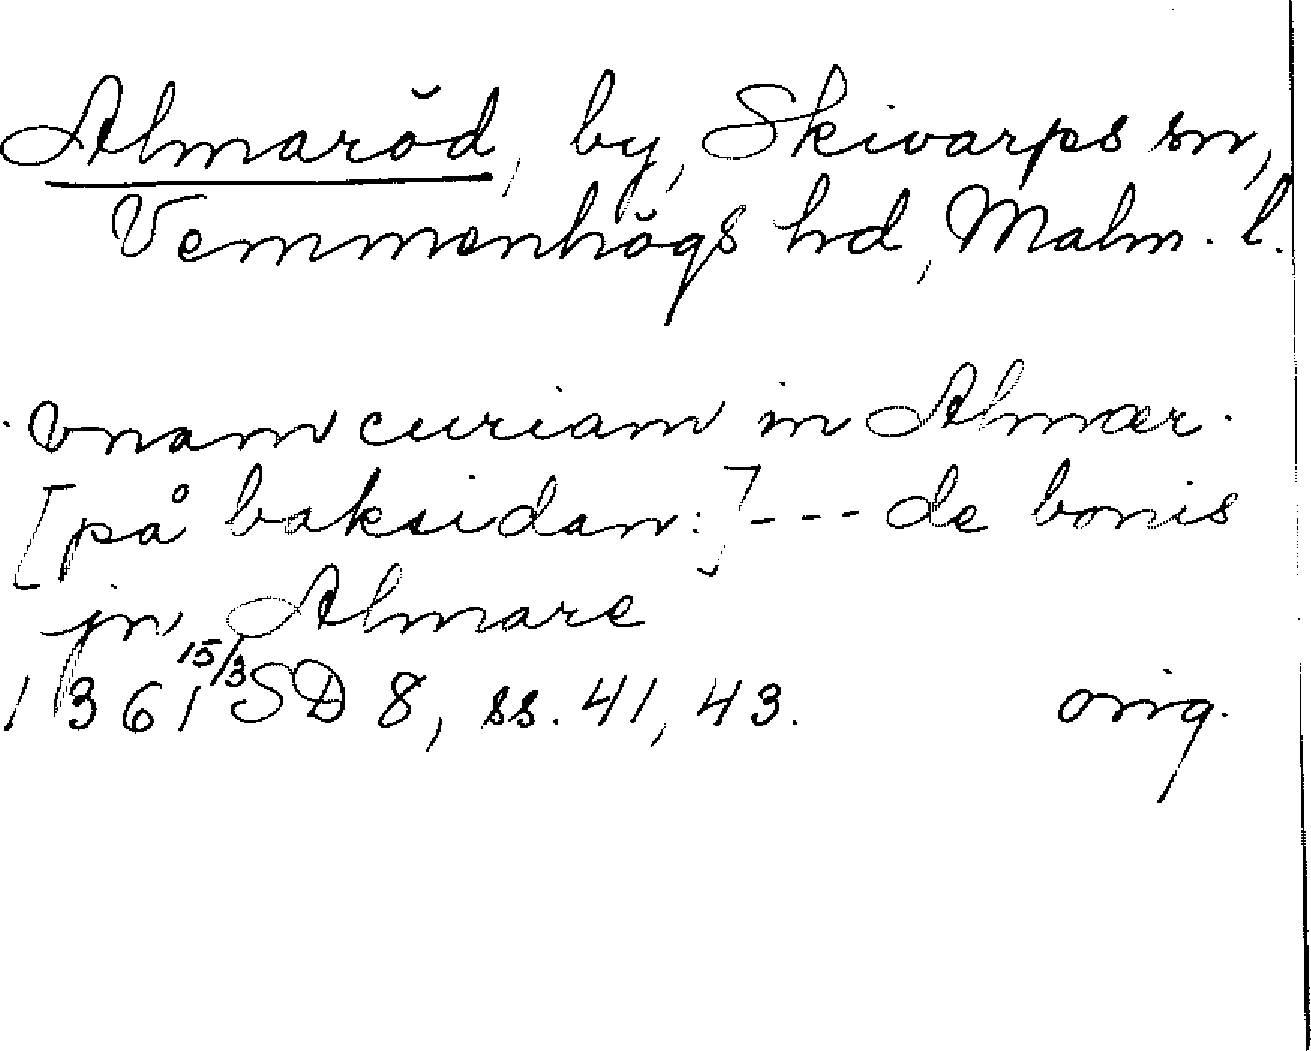 Almaröd, by, Skivarps sn,
Vemmenhögs hd, Malm. l.
vnam curiam in Almær.
[på baksidan:] --- de bonis
jn Almare
1361 15/3 SD 8, ss. 41, 43. orig.